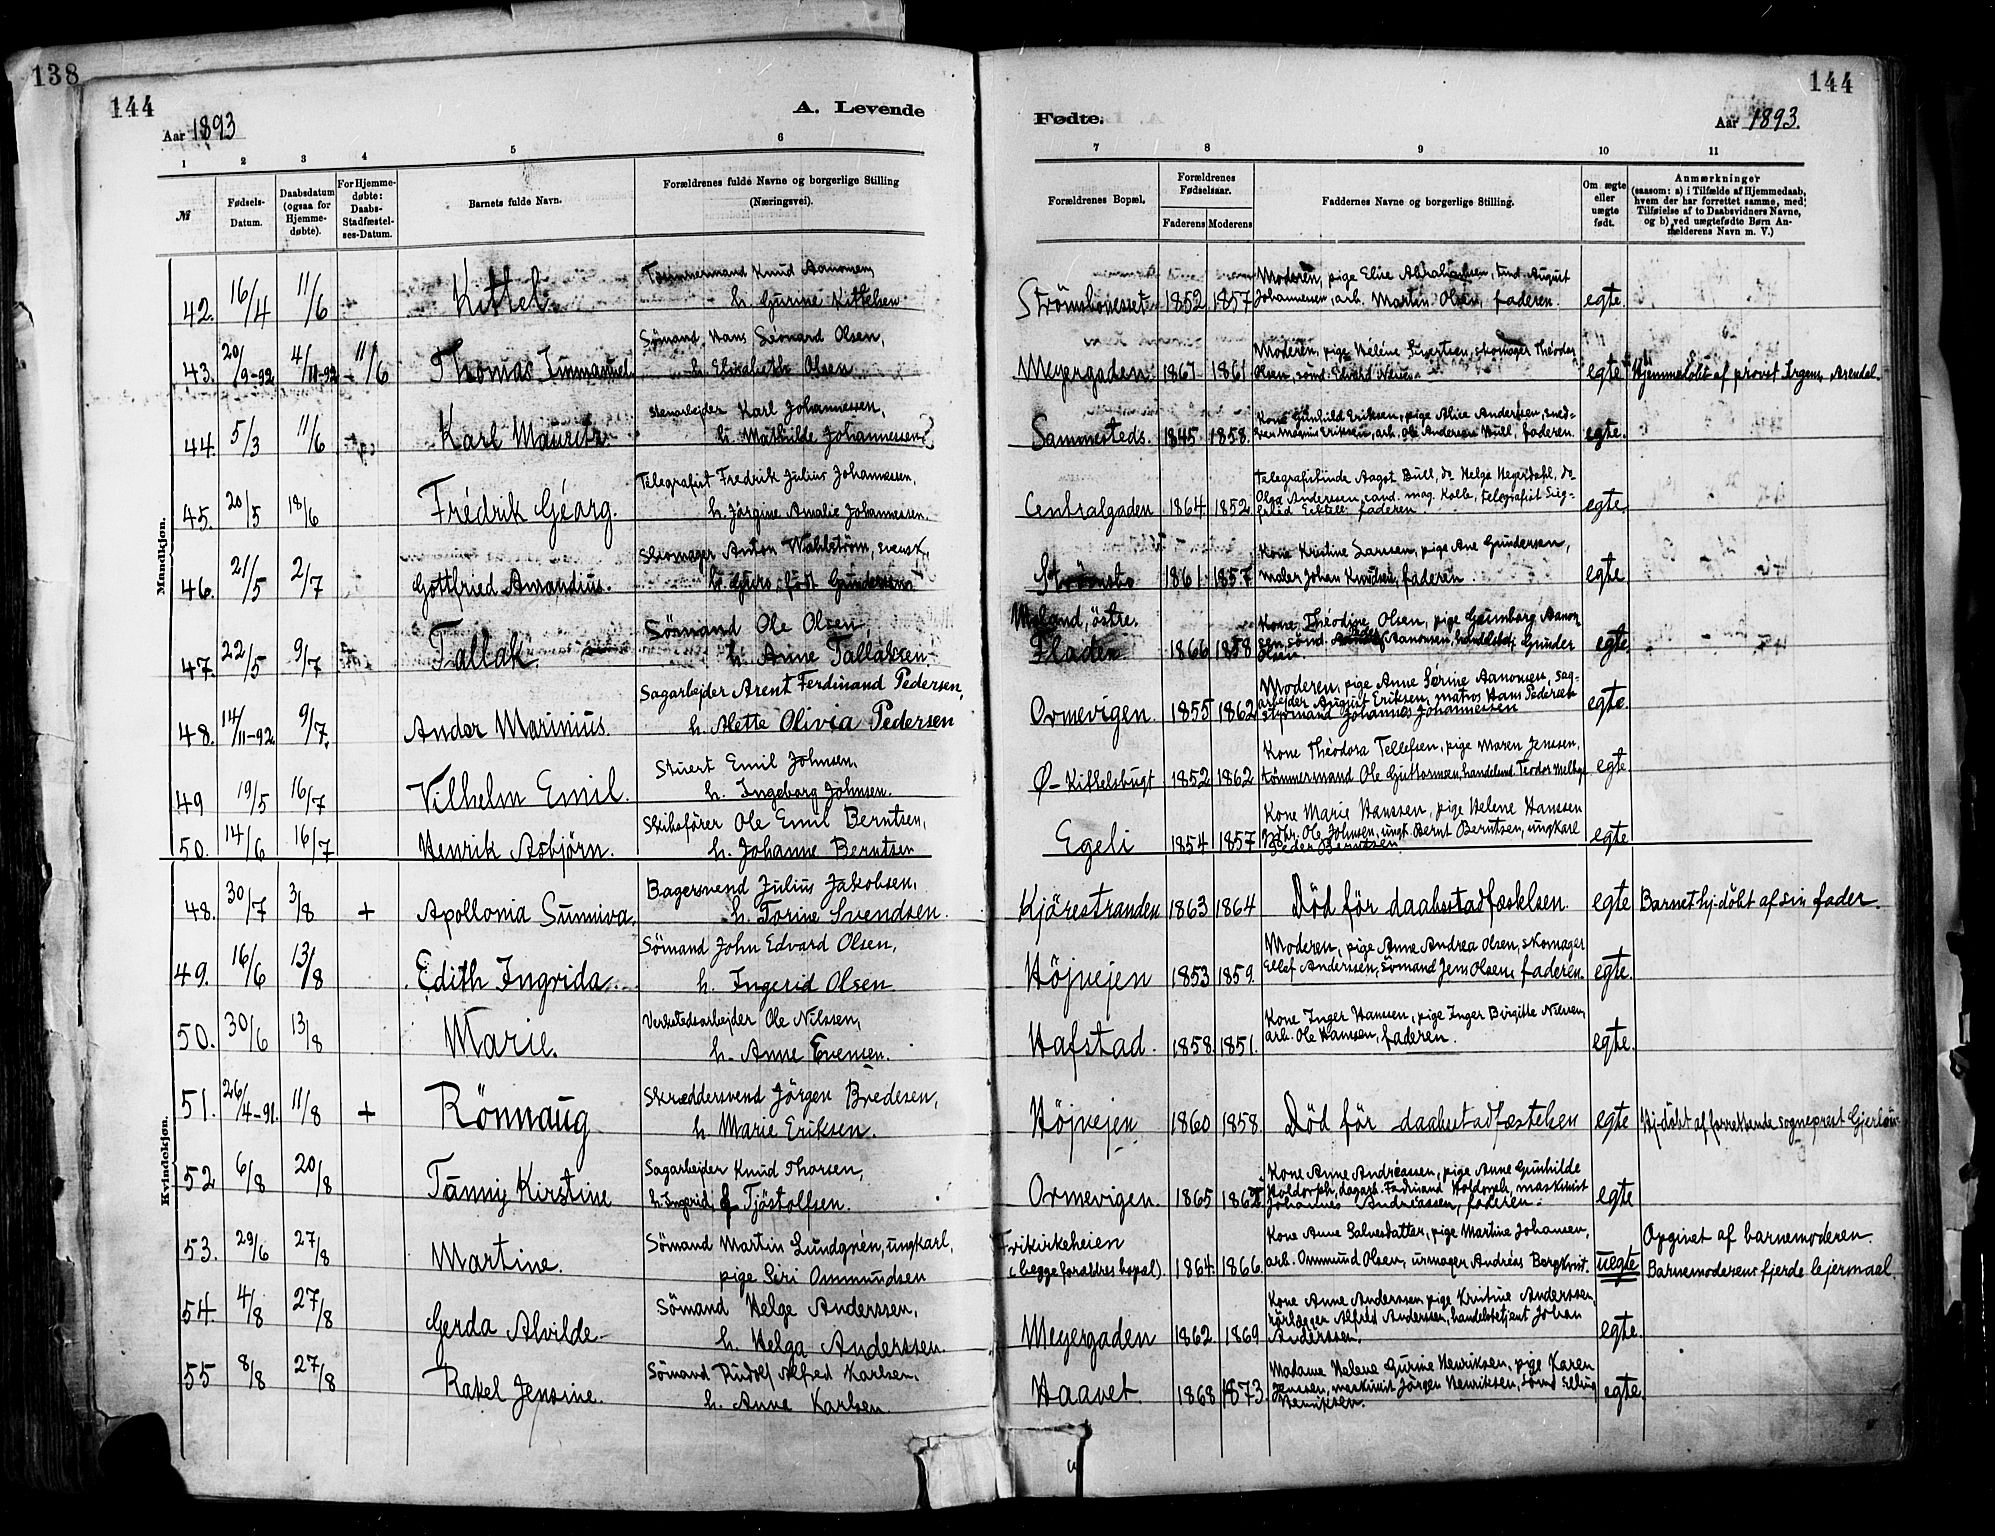 138
144
Aar 1893
A. Levende
1 2 3 4 5 6
№
Fødsels-Datum.
Daabsdatum (ogsaa for Hjemme-døbte).
For Hjemme-døbte: Daabs-Stadfæstel-ses-Datum.
Barnets fulde Navn.
Forældrenes fulde Navne og borgerlige Stilling (Næringsvei).
Mandkjøn.
42. 16/4 11/6 Kittel. Tømmermand Knud Aanonsen,
h. Gurine Kittelsen
43. 20/9-92 4/11-92 11/6 Thomas Immanuel. Sömand Hans Leonard Olsen,
h. Elisabeth Olsen
44. 5/3 11/6 Karl Mauritz. Stenarbejder Karl Johannessen,
h. Mathilde Johannessen
45. 20/5 18/6 Fredrik Georg. Telegrafist Fredrik Julius Johannessen,
h. Jörgine Amalie Johannessen.
46. 21/5 2/7 Gottfried Amandius. Skomager Anton Wahlström, svensk,
h. Guro, födt Gundersen
47. 22/5 9/7 Tallak Sömand Ole Olsen
h. Anne Tallaksen
48. 14/11-92 9/7. Ander Marinius. Sagarbejder Arent Ferdinand Pedersen,
h. Alette Olivia Pedersen
49 19/5 16/7 Vilhelm Emil. Stuert Emil Johnsen,
h. Ingeborg Johnsen.
50. 14/6 16/7 Henrik Asbjörn. Skibsförer Ole Emil Berntsen,
h. Johanne Berntsen
Kvindekjøn.
48. 30/7 3/8 + Apollonia Sunniva. Bagersvend Julius Jakobsen,
h. Torine Svendsen.
49. 16/6 13/8 Edith Ingrida. Sömand John Edvard Olsen,
h. Ingerid Olsen
50. 30/6 13/8 Marie. Verkstedsarbejder Ole Nilssen,
h. Anne Evensen.
51. 26/4-91. 11/8 + Rönnaug Skræddersvend Jörgen Bredesen,
h. Marie Eriksen.
52 6/8 20/8 Fanny Kirstine Sagarbejder Knud Thorsen,
h. Ingerid Tjöstolfsen.
53. 29/6 27/8 Martine. Sömand Martin Lundgren, ungkarl,
pige Siri Ommundsen
54. 4/8 27/8 Gerda Alvilde Sömand Helge Anderssen,
h. Helga Anderssen.
55 8/8 27/8 Rakel Jensine. Sömand Rudolf Alfred Karlsen,
h. Anna Karlsen.
144
Fødte.
Aar 1893.
7 8 9 10 11
Forældrenes Bopæl.
Forældrenes Fødselsaar.
Faderens Moderens
Faddernes Navne og borgerlige Stilling.
Om ægte eller uægte født.
Anmærkninger
(saasom: a) i Tilfælde af Hjemmedaab, hvem der har forrettet samme, med Tilføielse af to Daabsvidners Navne, og b) ved uægtefødte Børn An-melderens Navn m. V.)
Strömsbunesset 1852 1857 Moderen, pige Elise Abrahamsen, August
Johannessen, arb. Martin Olsen, faderen. egte.
Meyergaden 1867 1861 Moderen, pige Helene skomager Theodor
Olsen, sömd. Edvard egte Hjemmedöbt af provst Irgens, Arendal.
Sammesteds. 1845 1858. Kone Gunhild Eriksen, pige Alice Anderssen,
Eriksen, arb. Ole Andersen faderen. egte.
Centralgaden 1864 1852 Telegrafistinde Aagot Bull, do Helga Hegerdahl, do
Olga Andersen, cand. mag. Kolle, telegrafist Sieg-
fried faderen egte.
Strömsbo 1861 1857 Kone Kristine Larssen, pige Ane Gundersen,
maler Johan Knudsen, faderen. egte
Moland, östre.
Fladen. 1866 1858 Kone Theodine Olsen, pige Gunborg Aanon-
sen, sömd. Aanonsen, Gunder
Olsen egte.
Ormevigen. 1855 1862 Moderen, pige Anne Serine Aanonsen, sag-
arbejder August Eriksen, matros Hans Pedersen
styrmand Johannes Johannessen egte.
Ø-Kittelsbugt 1852 1862 Kone Theodora Tellefsen, pige Maren Jenssen,
tömmermand Ole Guttormsen, handelsmd. Teodor egte.
Egeli 1854 1857 Kone Marie Hanssen, pige Helene Hanssen
Ole Johnsen, ungk. Bernt Berntsen, ungkarl
Peder Berntsen. egte
Kjörestranden 1863 1864 Död för daabsstadfæstelsen. egte Barnet hj. döbt af sin fader.
Höjvejen 1853 1859. Moderen, pige Anne Andrea Olsen, skomager
Ellef Anderssen, sömand Jens Olsen, faderen. egte.
Hafstad. 1858. 1851. Kone Inger Hanssen, pige Inger Birgitte Nielsen,
arb. Ole Hanssen, faderen. egte.
Höjvejen 1860 1858. Död för daabsstadfæstelsen egte Hj-döbt af forrettende sogneprest
Ormevigen. 1865 Kone Anne Andreassen, pige Anne Gunhilde
Holdorph, dagarb. Ferdinand Holdorph, maskinist
Johannes Andreassen, faderen. egte
Frikirkeheien
(begge foræld
res bopæl). 1864. 1866. Kone Anne Salvesdatter, pige Martine Johansen,
arb. Ommund Olsen, urmager Andreas Bergkvist. uegte
Opgivet af barnemoderen.
Barnemoderens fjerde lejermaal.
Meyergaden 1862 1869 Kone Anne Anderssen, pige Kristine Anderssen,
Alfred Anderssen, handelsbetjent Johan
Anderssen. egte.
Haavet. 1868 1873. Madame Helene Gurine Henriksen, pige Karen
Jenssen, maskinist Jörgen Henriksen, sömd. Elling
Henriksen. egte.